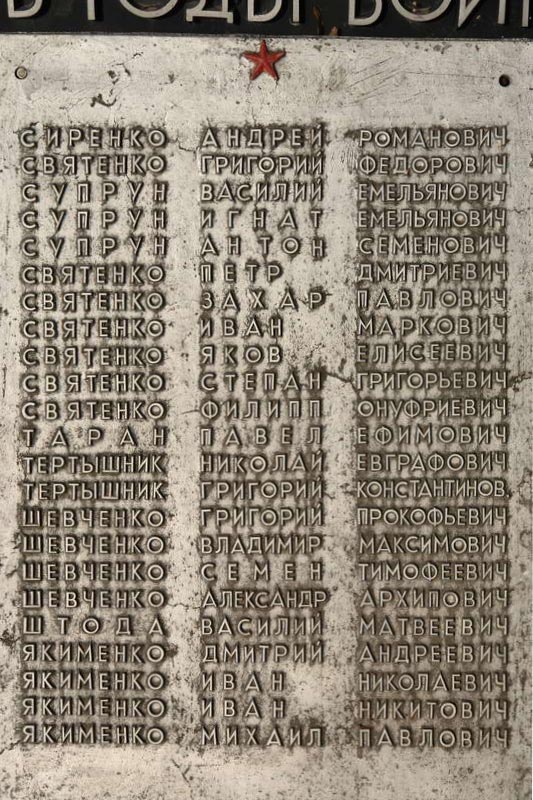 В ГОДЫ ВОЙН
СИРЕНКО АНДРЕЙ РОМАНОВИЧ
СВЯТЕНКО ГРИГОРИЙ ФЕДОРОВИЧ
СУПРУН ВАСИЛИЙ ЕМЕЛЬЯНОВИЧ
СУПРУН ИГНАТ ЕМЕЛЬЯНОВИЧ
СУПРУН АНТОН СЕМЕНОВИЧ
СВЯТЕНКО ПЕТР ДМИТРИЕВИЧ
СВЯТЕНКО ЗАХАР ПАВЛОВИЧ
СВЯТЕНКО ИВАН МАРКОВИЧ
СВЯТЕНКО ЯКОВ ЕЛИСЕЕВИЧ
СВЯТЕНКО СТЕПАН ГРИГОРЬЕВИЧ
СВЯТЕНКО ФИЛИПП ОНУФРИЕВИЧ
ТАРАН ПАВЕЛ ЕФИМОВИЧ
ТЕРТЫШНИК НИКОЛАЙ ЕВГРАФОВИЧ
ТЕРТЫШНИК ГРИГОРИЙ КОНСТАНТИНОВ.
ШЕВЧЕНКО ГРИГОРИЙ ПРОКОФЬЕВИЧ
ШЕВЧЕНКО ВЛАДИМИР МАКСИМОВИЧ
ШЕВЧЕНКО СЕМЕН ТИМОФЕЕВИЧ
ШЕВЧЕНКО АЛЕКСАНДР АРХИПОВИЧ
ШТОДА ВАСИЛИЙ МАТВЕЕВИЧ
ЯКИМЕНКО ДМИТРИЙ АНДРЕЕВИЧ
ЯКИМЕНКО ИВАН НИКОЛАЕВИЧ
ЯКИМЕНКО ИВАН НИКИТОВИЧ
ЯКИМЕНКО МИХАИЛ ПАВЛОВИЧ